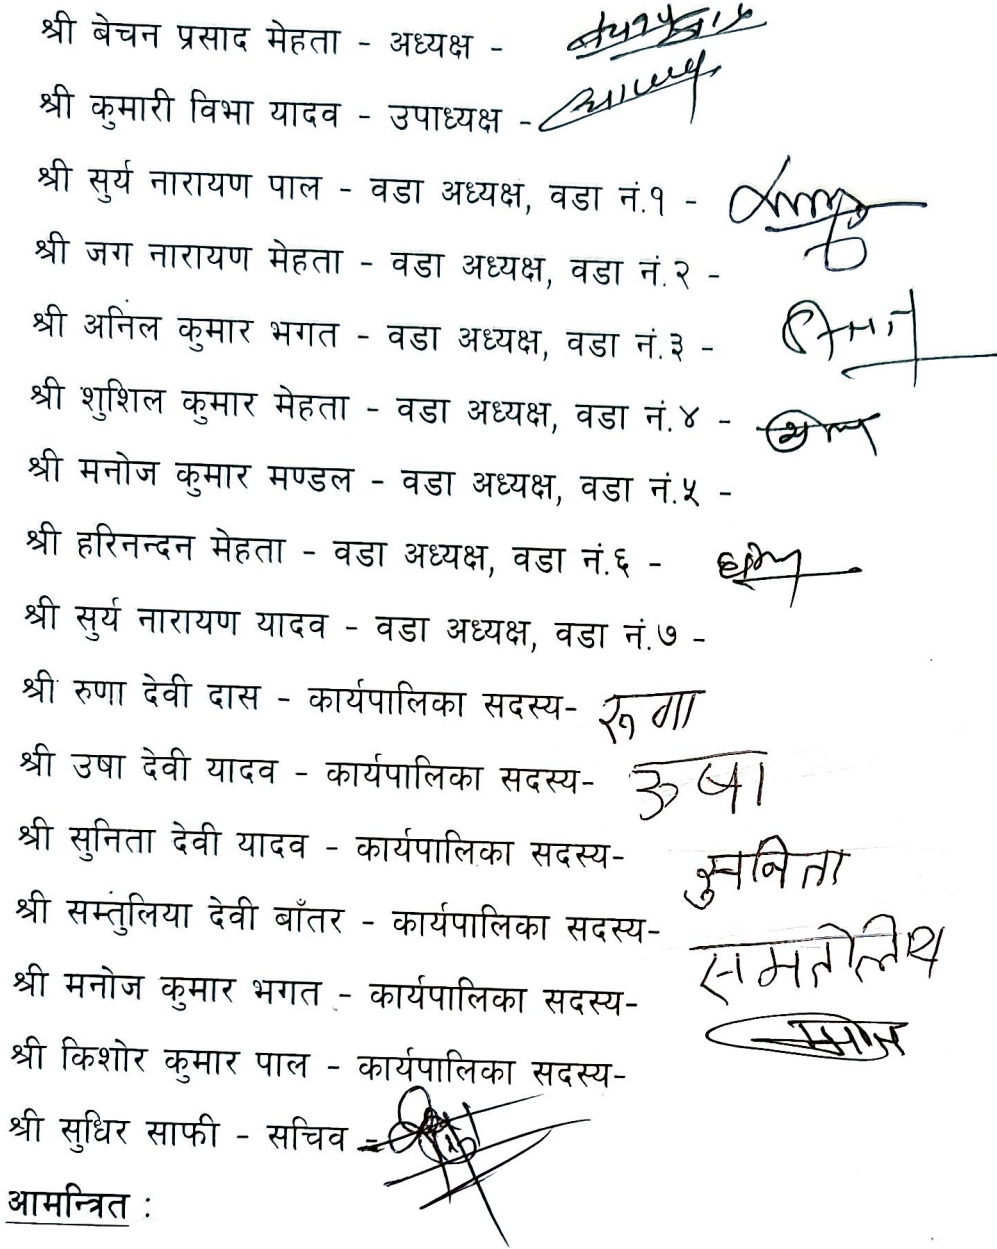 श्री बेचन प्रसाद मेहता - अध्यक्ष -
श्री कुमारी विभा यादव - उपाध्यक्ष -
श्री सुर्य नारायण पाल - वडा अध्यक्ष, वडा नं.१ -
श्री जग नारायण मेहता - वडा अध्यक्ष, वडा नं.२ -
श्री अनिल कुमार भगत - वडा अध्यक्ष, वडा नं.३ -
श्री शुशिल कुमार मेहता - वडा अध्यक्ष, वडा नं.४ -
श्री मनोज कुमार मण्डल - वडा अध्यक्ष, वडा नं.५ -
श्री हरिनन्दन मेहता - वडा अध्यक्ष, वडा नं.६ -
श्री सुर्य नारायण यादव - वडा अध्यक्ष, वडा नं.७ -
श्री रुणा देवी दास - कार्यपालिका सदस्य- रुगा
श्री उषा देवी यादव - कार्यपालिका सदस्य- ऊषा
श्री सुनिता देवी यादव - कार्यपालिका सदस्य- सुनिता
श्री सम्तुलिया देवी बाँतर - कार्यपालिका सदस्य-
श्री मनोज कुमार भगत - कार्यपालिका सदस्य-
श्री किशोर कुमार पाल - कार्यपालिका सदस्य-
श्री सुधिर साफी - सचिव -
आमन्त्रित :